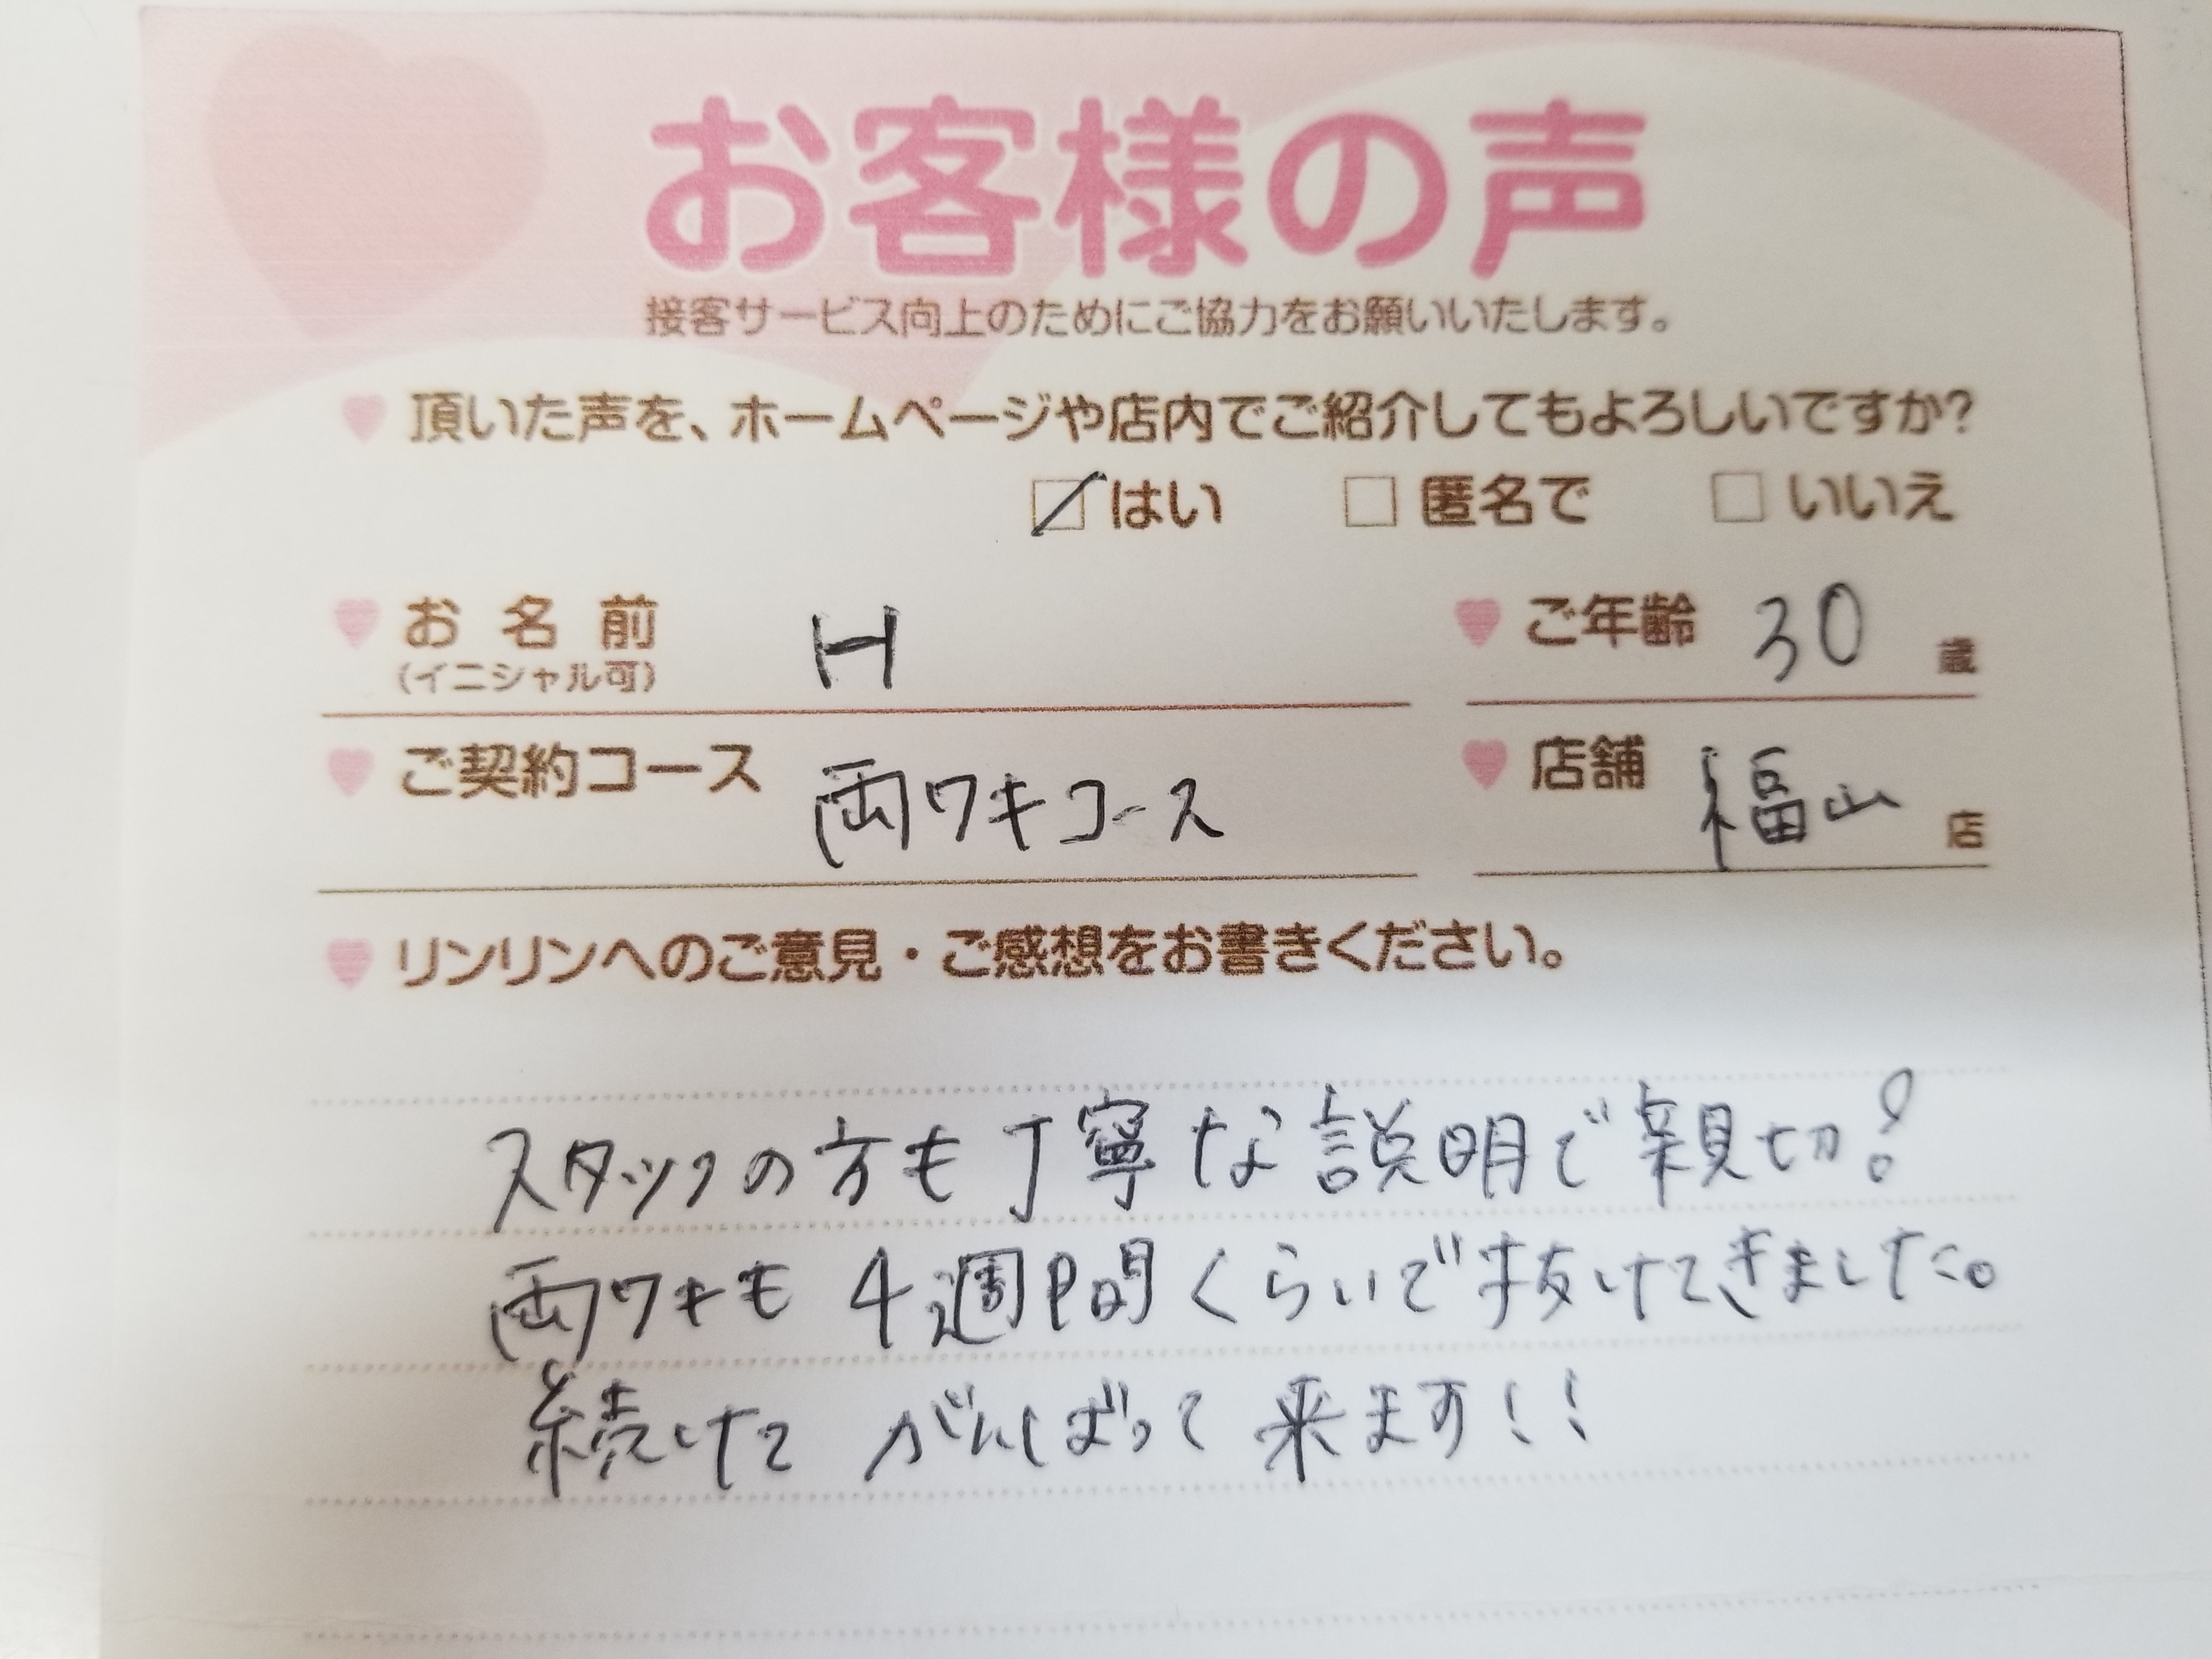 お客様の声
接客サービス向上のためにご協力をお願いいたします。
頂いた声を、ホームページや店内でご紹介してもよろしいですか?
はい 匿名で いいえ
お名前 H ご年齢 30 歳
(イニシャル可)
ご契約コース 両ワキコース 店舗 福山 店
リンリンへのご意見・ご感想をお書きください。
スタッフの方も丁寧な説明で親切!
両ワキも4週間くらいで抜けてきました。
続けてがんばって来ます!!